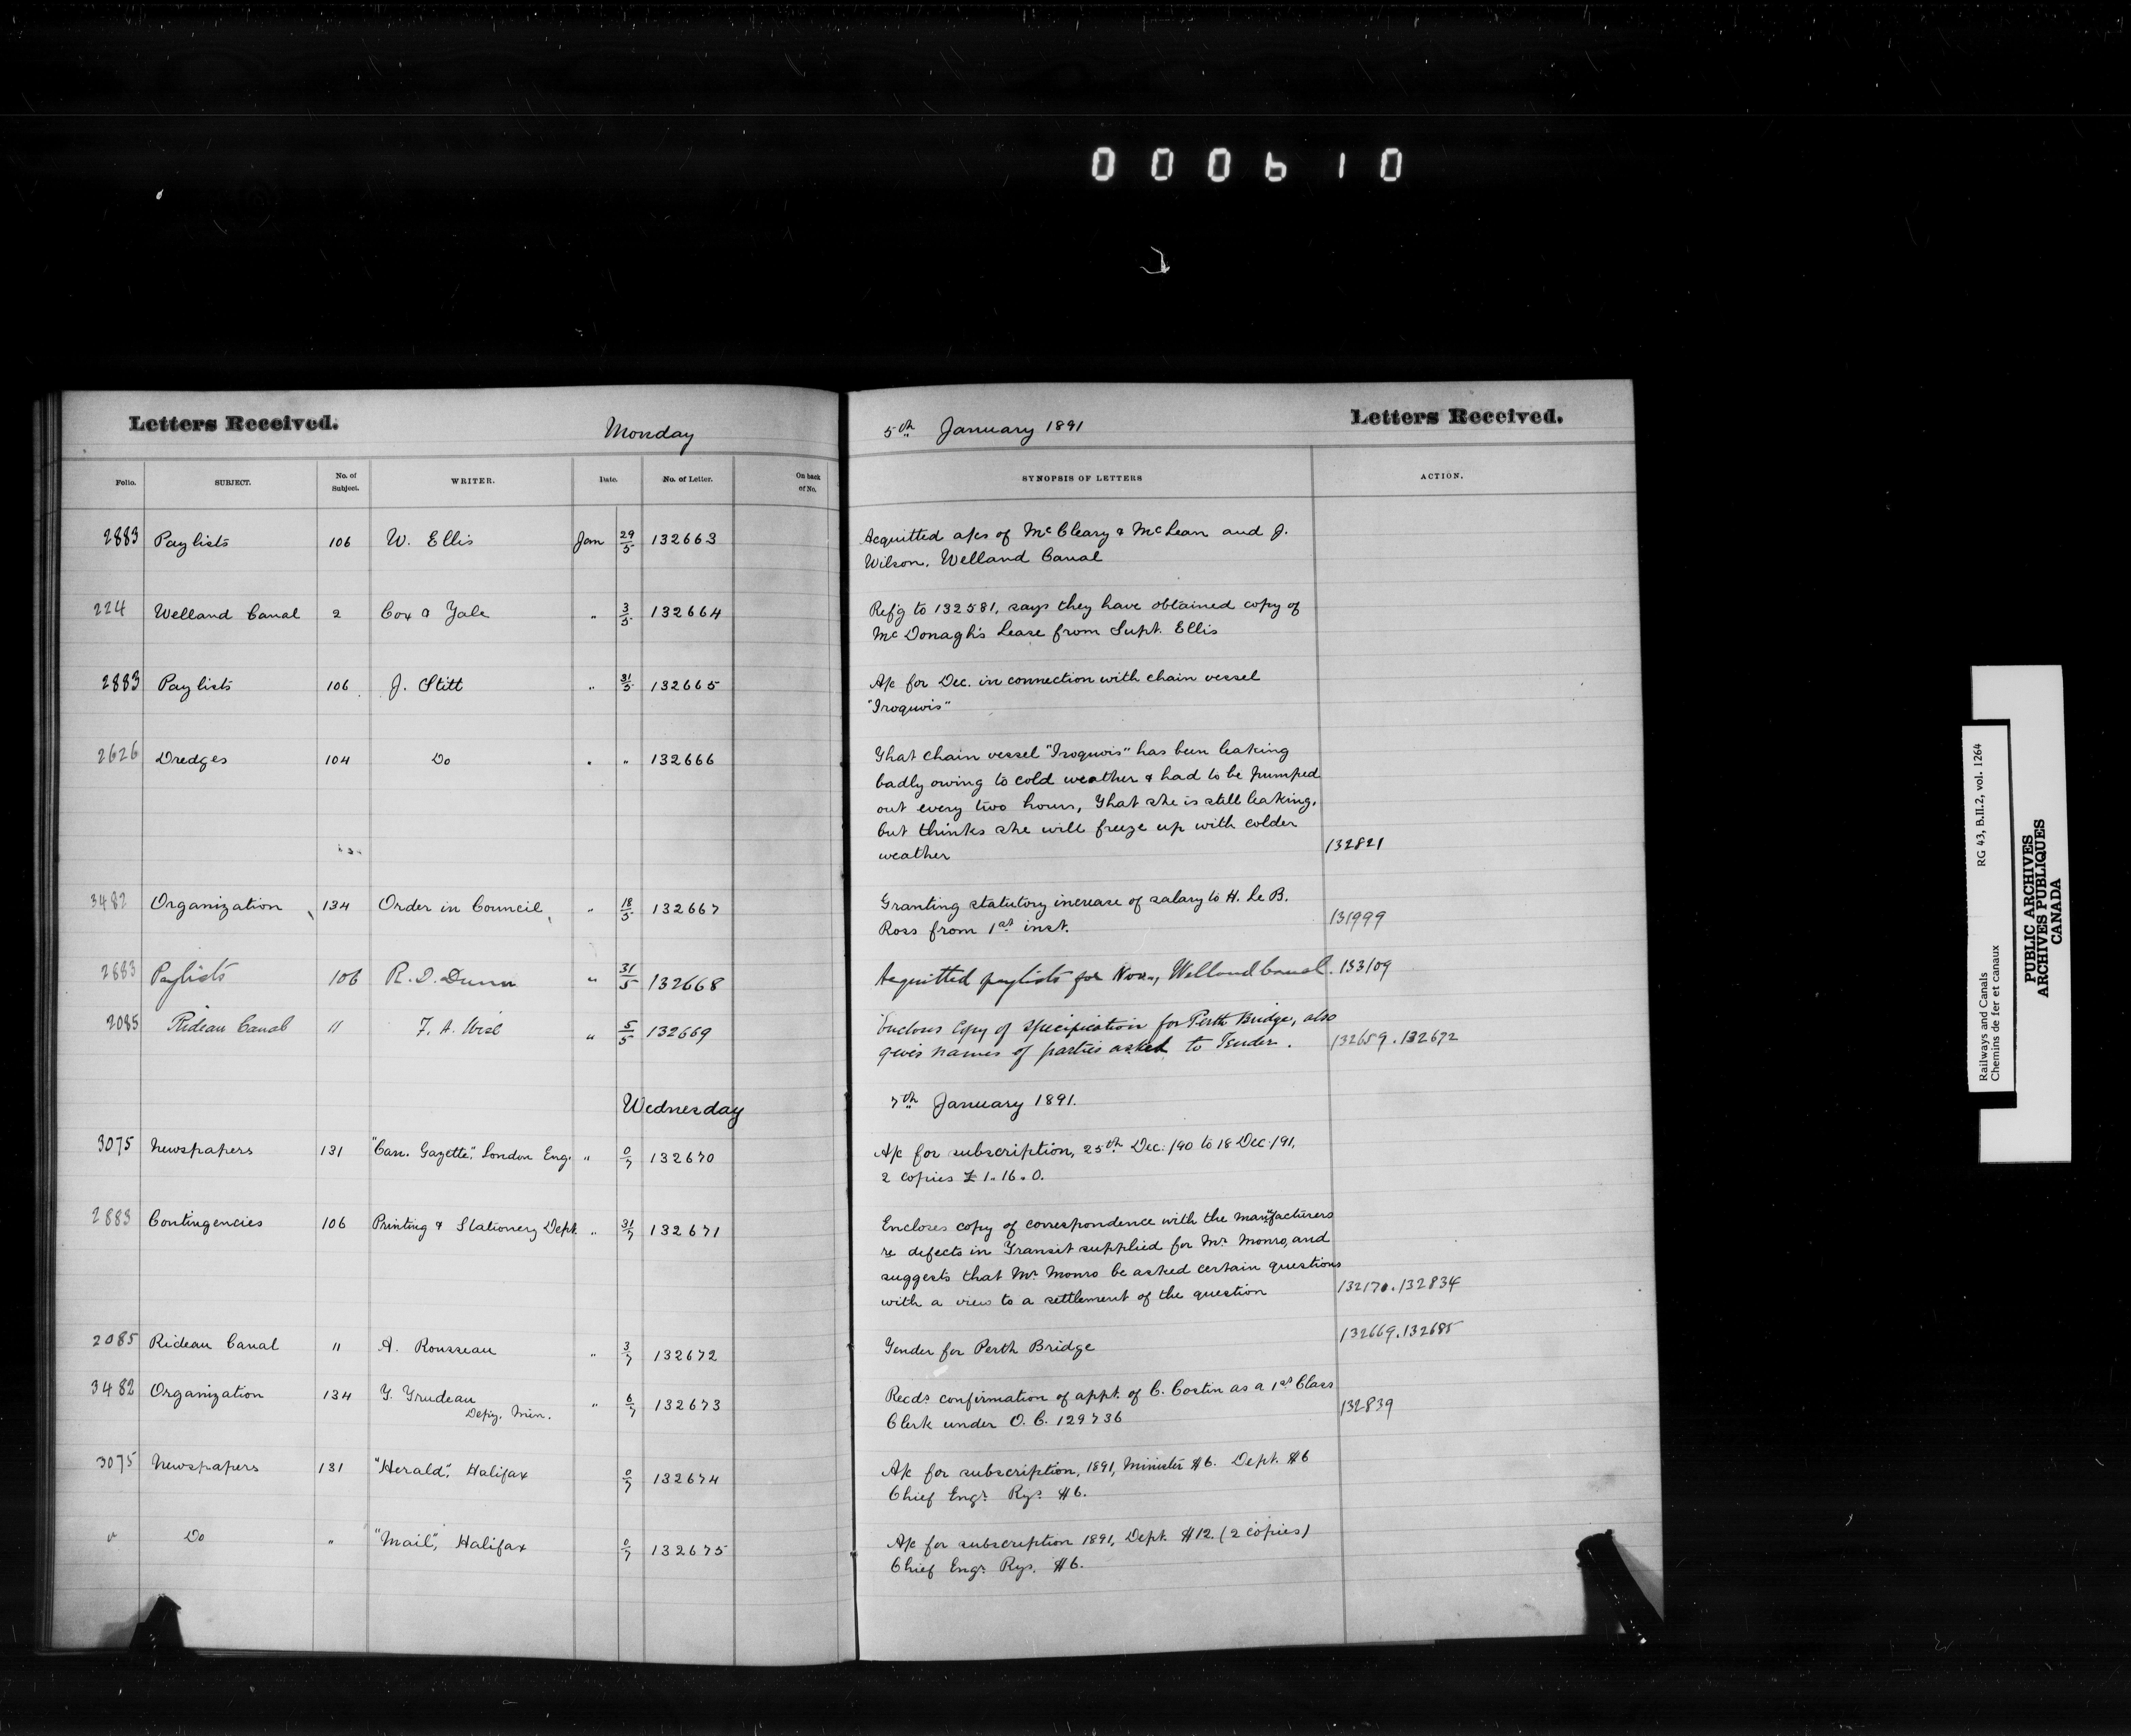 000610
Letters Received. Monday 5th January 1891 Letters Received.
Folio. SUBJECT. No. of Subject. WRITER. Date. No. of Letter. On back of No. SYNOPSIS OF LETTERS ACTION.
2883 Paylists 106 W. Ellis Jan 29/5 132663 Acquitted a/cs of McCleary & McLean and J.
Wilson, Welland Canal
224 Welland Canal 2 Cox & Yale " 3/5 132664 Ref'g to 132581, says they have obtained copy of
McDonagh's Lease from Supt. Ellis
2883 Paylists 106 J. Stitt " 31/5 132665 A/c for Dec. in connection with chain vessel
"Iroquois"
2626 Dredges 104 Do " " 132666 That chain vessel "Iroquois" has been leaking
badly owing to cold weather & had to be pumped
out every two hours, That she is still leaking,
but thinks she will freeze up with colder
weather 132821
3482 Organization 134 Order in Council, " 18/5 132667 Granting statutory increase of salary to H. Le B.
Ross from 1st inst. 131999
2883 Paylists 106 R. D. Dunn " 31/5 132668 Acquitted paylists for Nov., Welland Canal. 133109
2085 Rideau Canal 11 F. A. Wise " 5/5 132669 Encloses Copy of Specification for Perth Bridge, also
gives names of parties asked to Tender. 132659. 132672
Wednesday 7th January 1891.
3075 Newspapers 131 "Can. Gazette", London Eng. " 0/7 132670 A/c for subscription, 25th Dec. /90 to 18 Dec /91,
2 copies £1.16.0.
2883 Contingencies 106 Printing & Stationery Dept. " 31/7 132671 Encloses copy of correspondence with the manufacturers
re defects in Transit supplied for Mr. Monro, and
suggests that Mr. Monro be asked certain questions
with a view to a settlement of the question 132170. 132834
2085 Rideau Canal 11 A. Rousseau " 3/7 132672 Tender for Perth Bridge 132669. 132685
3482 Organization 134 T. Trudeau Depy. Min. " 6/7 132673 Recds confirmation of appt. of C. Costin as a 1st Class
Clerk under O. C. 129736 132839
3075 Newspapers 131 "Herald", Halifax 0/7 132674 A/c for subscription, 1891, Minister $6. Dept. $6
Chief Engr. Rys. $6.
" Do " "Mail", Halifax 0/7 132675 A/c for subscription 1891, Dept. $12. (2 copies)
Chief Engr. Rys. $6.
Railways and Canals RG 43, B.II.2, vol. 1264
Chemins de fer et canaux
PUBLIC ARCHIVES
ARCHIVES PUBLIQUES
CANADA